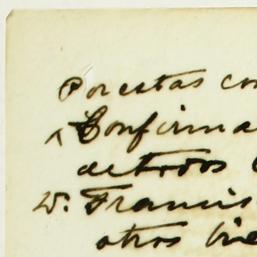 Por estas con
Confirma
de todos
Dn. Francis
otros bie